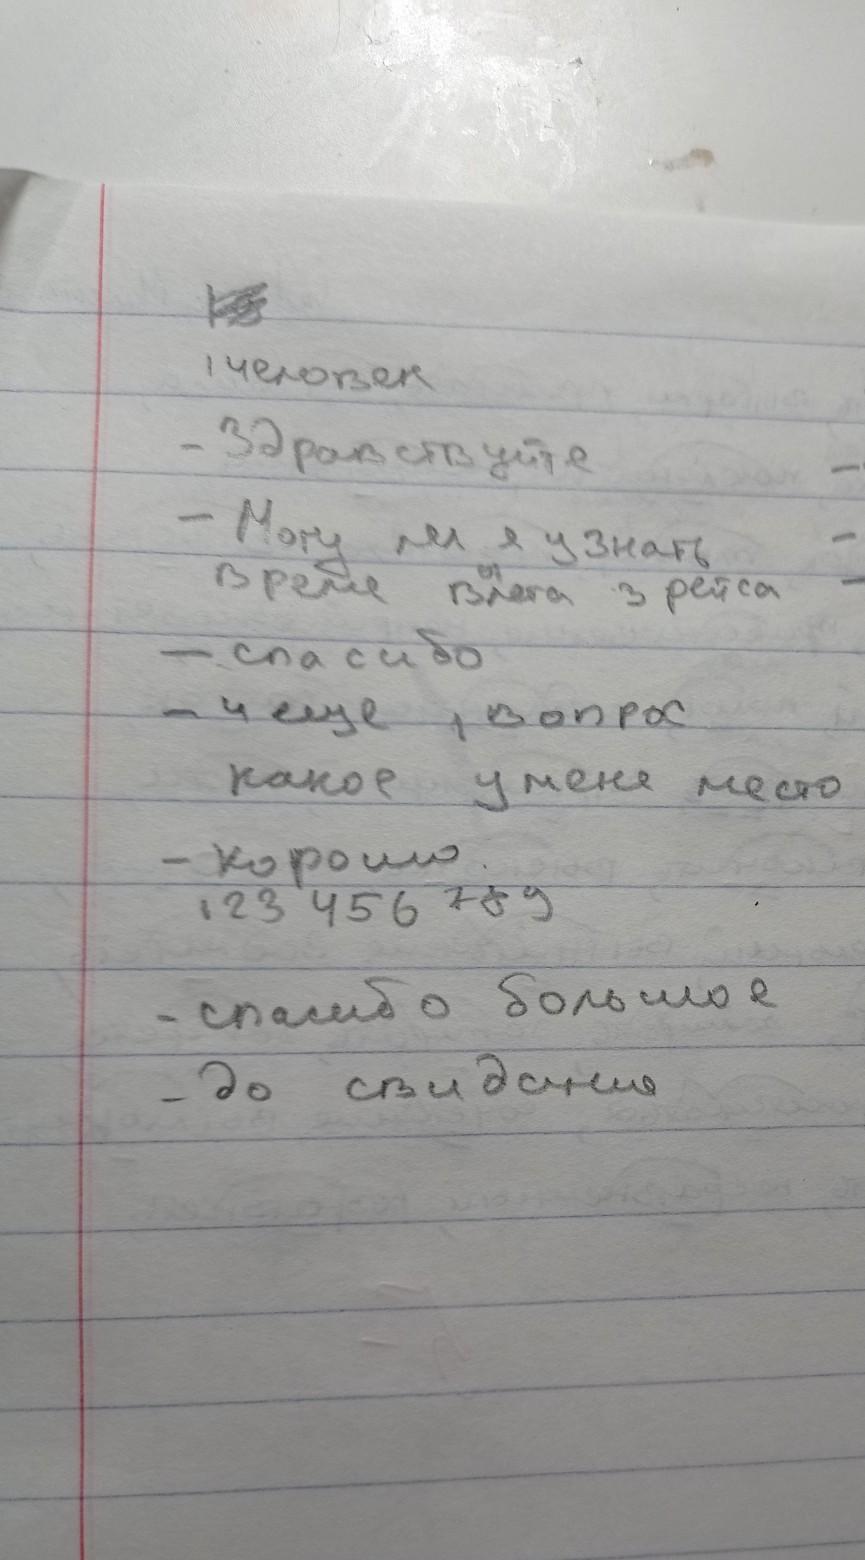 1 человек
- Здравствуйте
- Могу ли я узнать
време вылета 3 рейса
- спасибо
- и еще 1 вопрос
какое у мене место
- хорошо.
123 456 789
- спасибо большое
- до свидания